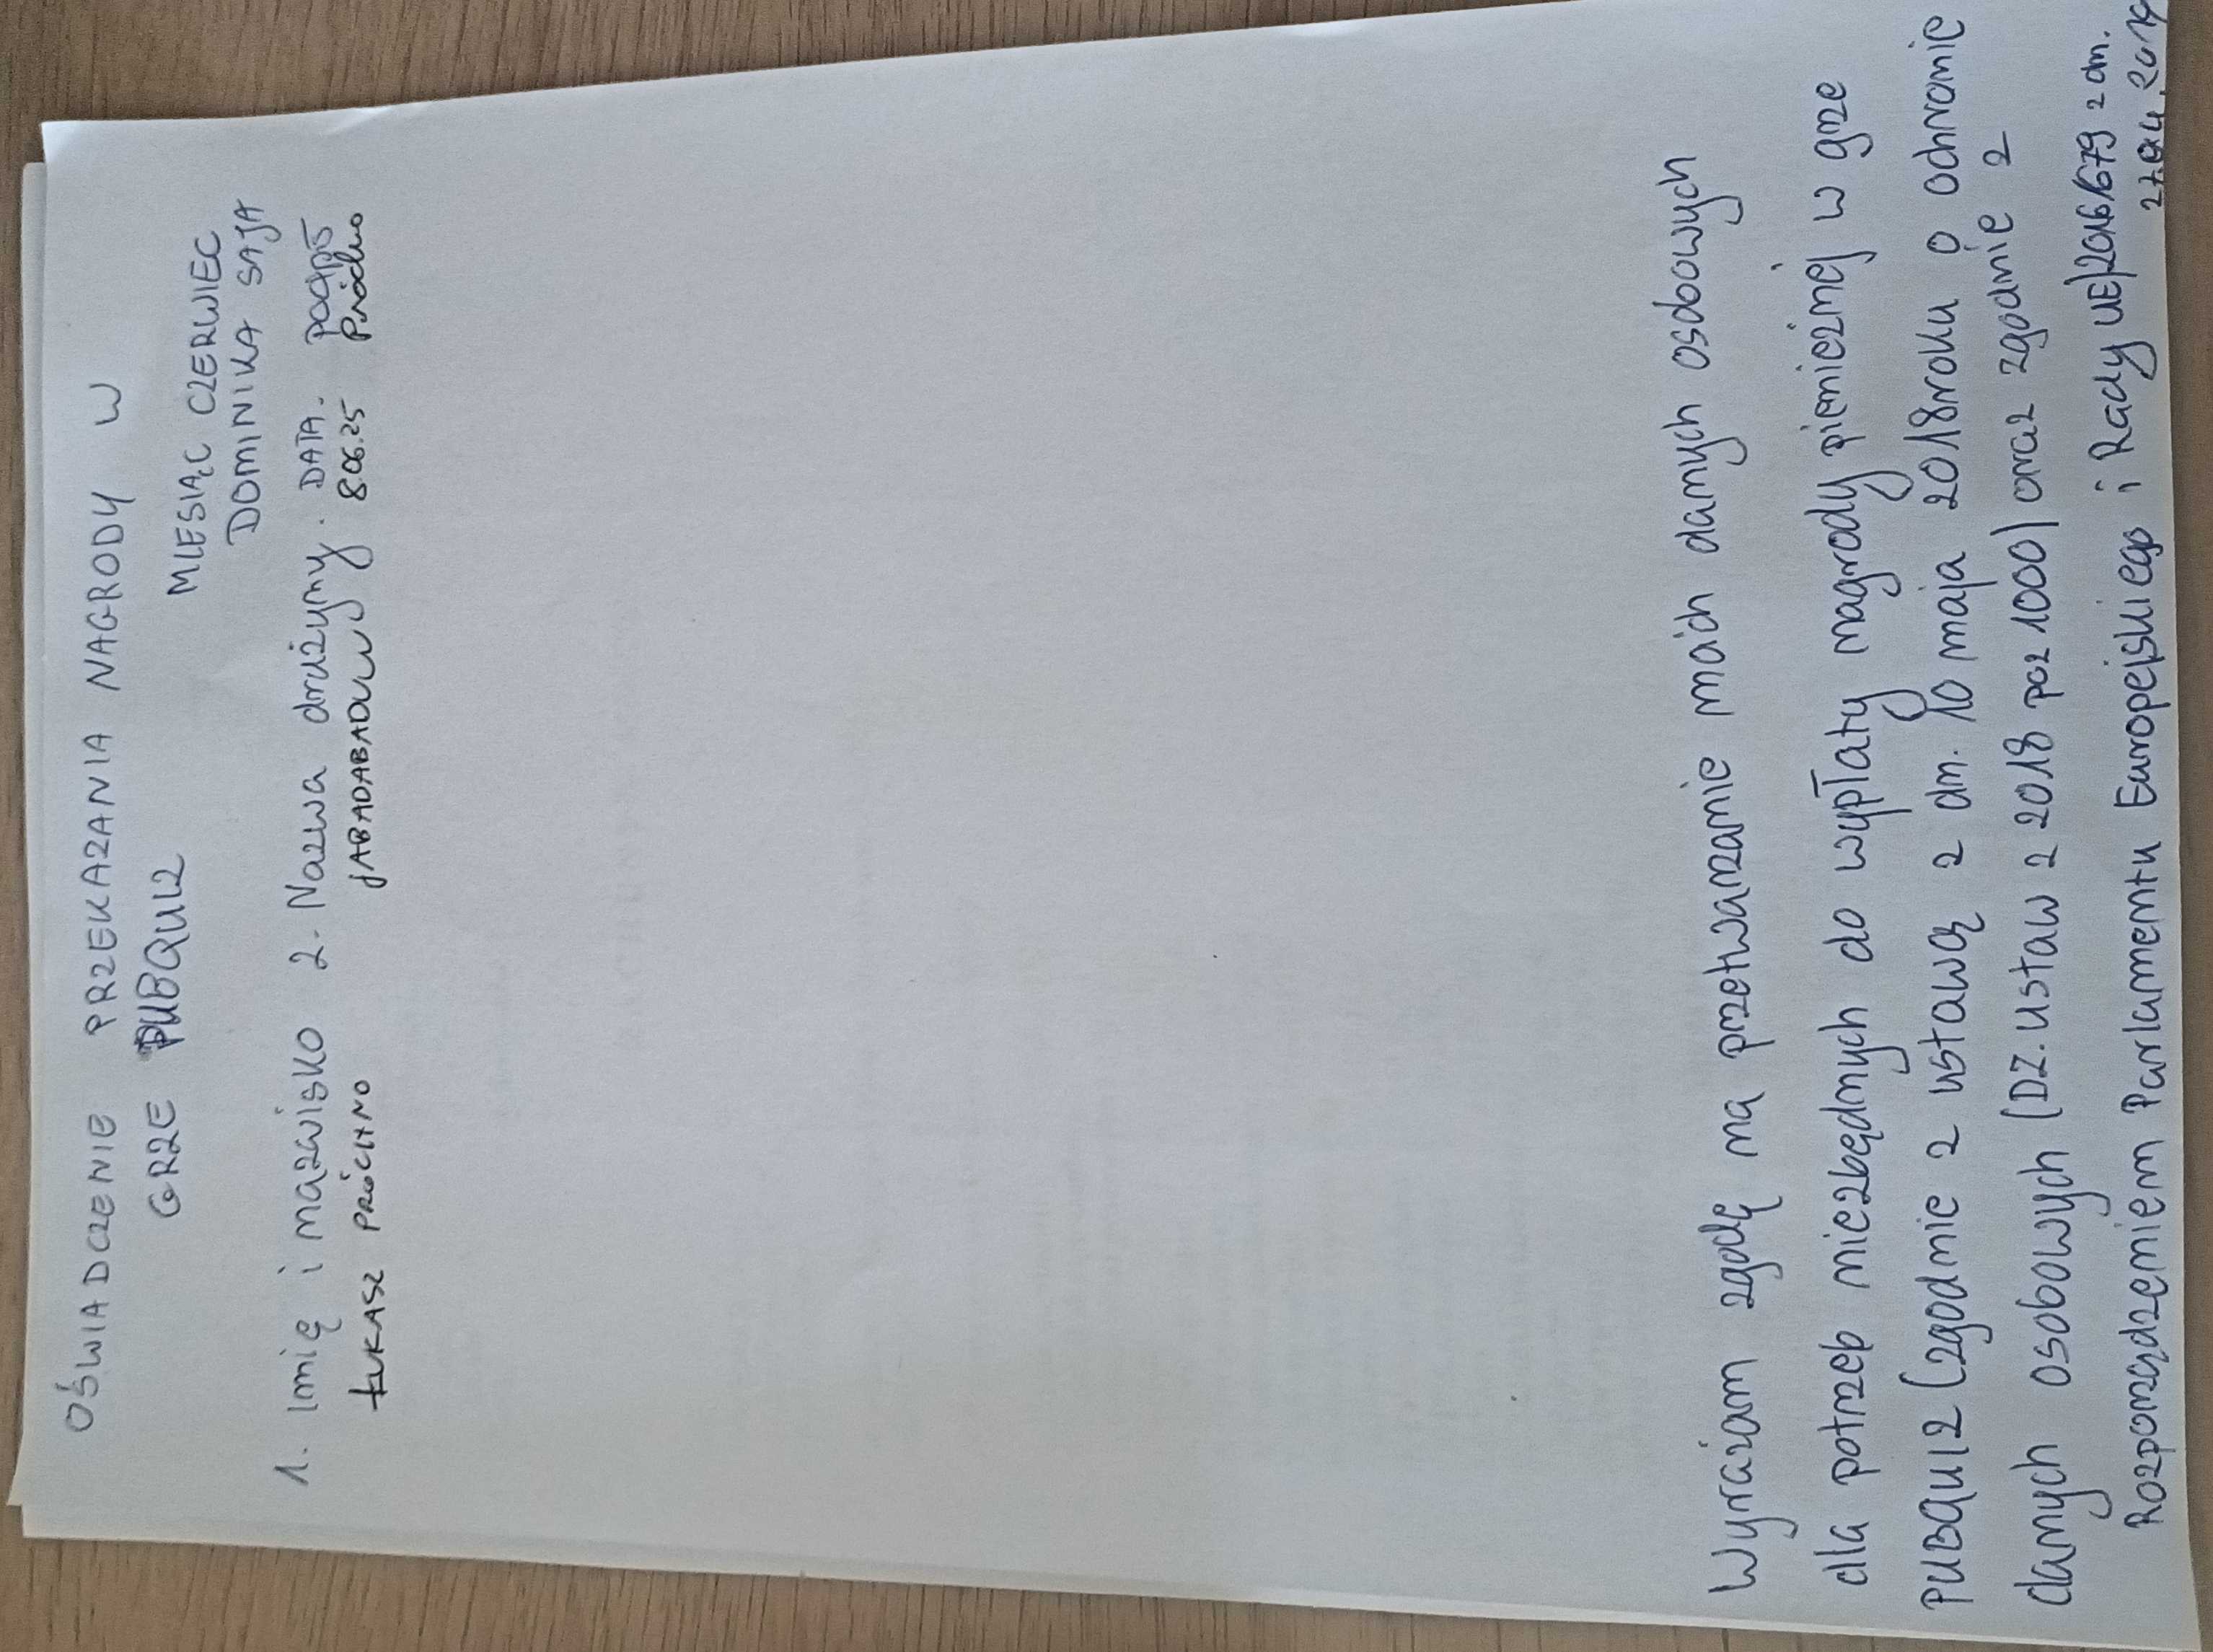 OŚWIADCZENIE PRZEKAZANIA NAGRODY W
GRZE PUBQUIZ
MIESIĄC CZERWIEC
DOMINIKA SAJA
1. Imię i nazwisko 2. Nazwa drużyny. DATA. podpis
ŁUKASZ PRÓCHNO JABADABADUUU 8.06.25 Próchno
Wyrażam zgodę na przetwarzanie moich danych osobowych
dla potrzeb niezbędnych do wypłaty nagrody pieniężnej w grze
PUBQUIZ (zgodnie z ustawą z dn. 10 maja 2018 roku o ochronie
danych osobowych (DZ. Ustaw z 2018 poz 1000) oraz zgodnie z
Rozporządzeniem Parlamentu Europejskiego i Rady UE)2016/679 z dn.
27.04.2014